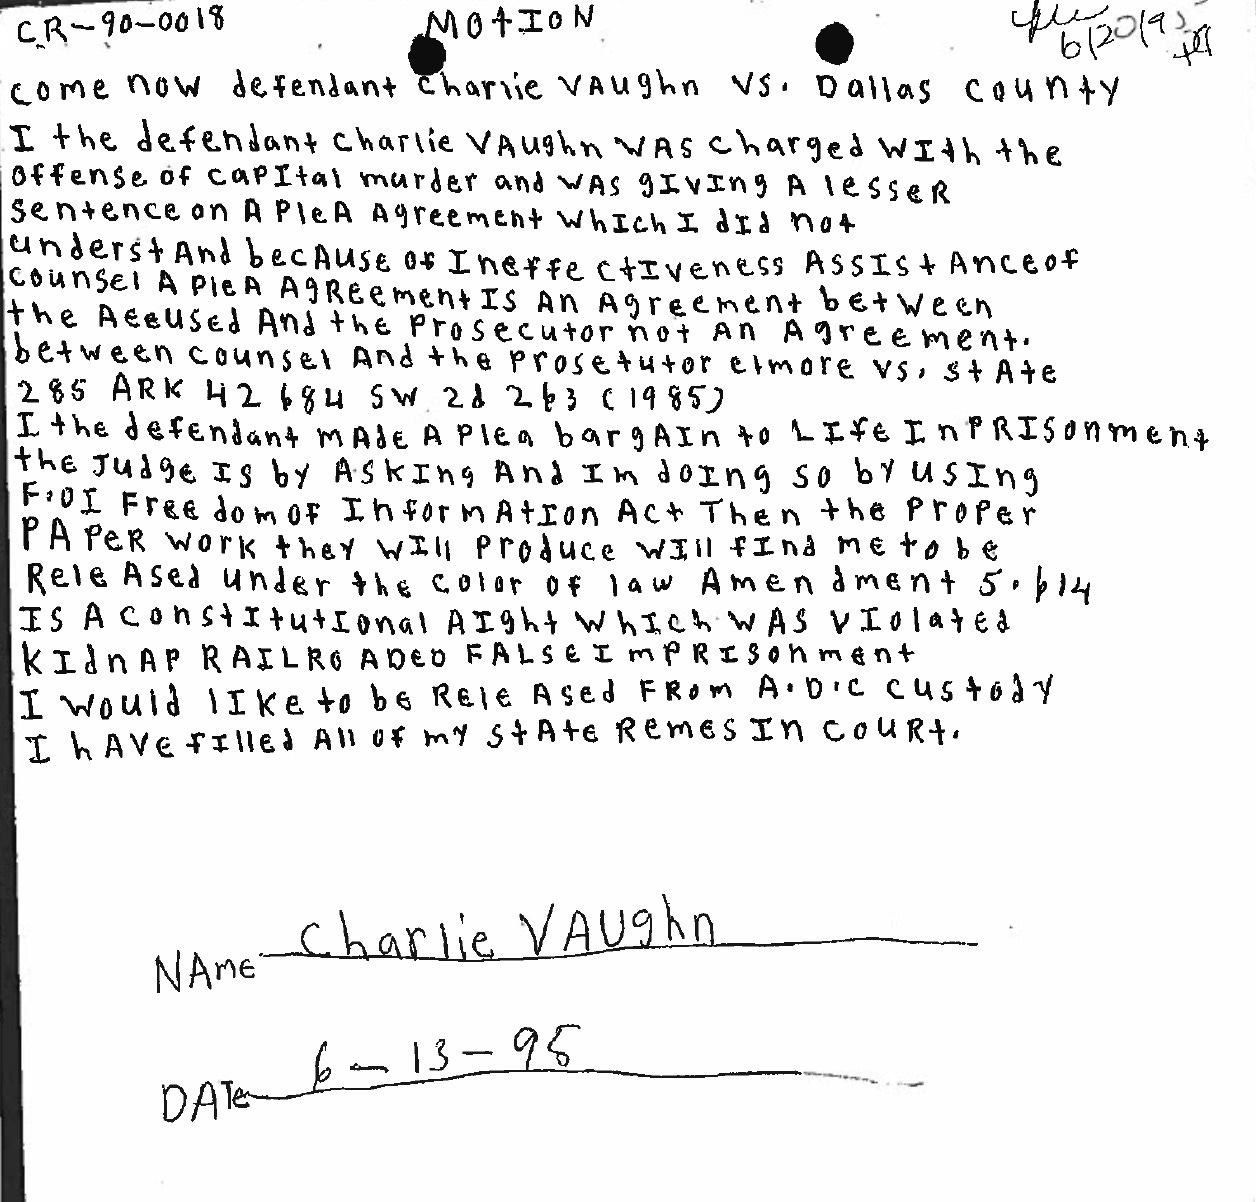 CR-90-0018 MOTION
6/20/95
come now defendant Charlie VAughn VS. Dallas county
I the defendant Charlie VAughn WAS charged WITH the
offense of capItal murder and WAS gIVIng A lesseR
Sentence on A PleA Agreement WhIch I dId not
understAnd becAuse of IneffectIveness AssIstAnce of
counsel A PleA AgReement IS An Agreement between
the Aeeused And the Prosecutor not An Agreement.
between counsel And the Prosetutor elmore vs. stAte
285 ARK 42 684 SW 2d 263 (1985)
I the defendant mAde A Plea bargAIn to LIfe InPRISonment
the Judge IS by ASKIng And Im doIng so by usIng
F.OI Freedom of InformAtIon Act Then the Proper
PAPeR work they WIll Produce WIll fInd me to be
ReleAsed under the color of law Amendment 5. 614
IS A constItutIonal AIght WhIch WAS VIolated
KIdnAP RAILROADED FALSe ImPRISonment
I would lIKe to be ReleAsed FRom A.D.C custody
I hAVe fIlled All of my stAte Remes In couRt.
NAme Charlie VAUghn
DATe 6-13-95